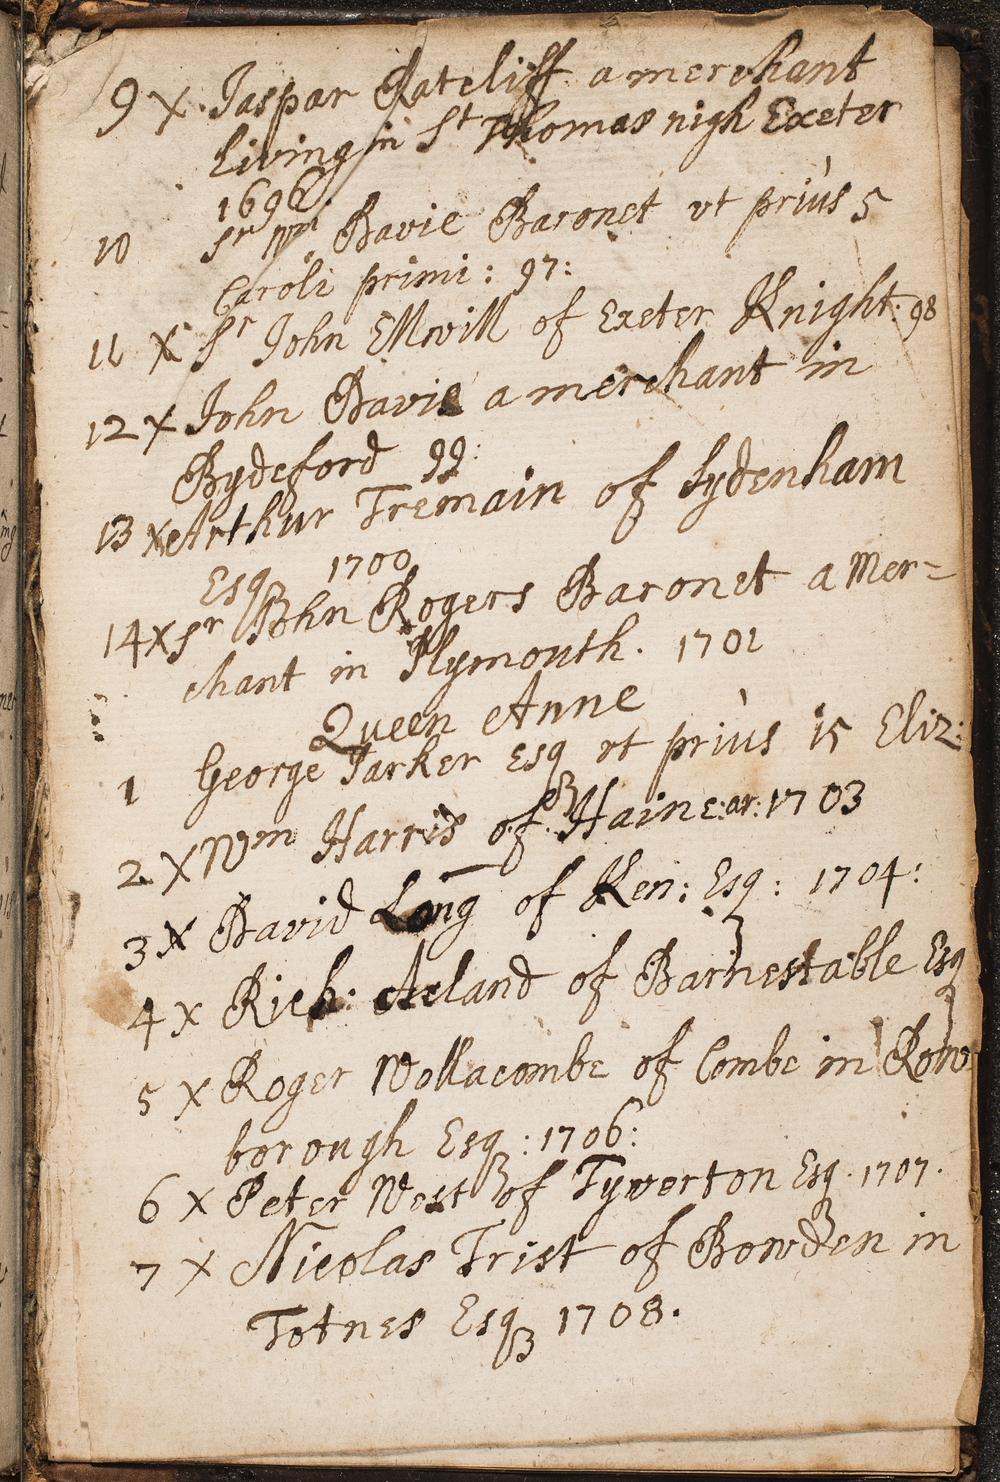 9 x Jaspar Ratcliff a merchant
Living in St Thomas nigh Exeter
1696
10 Sr Wm Davie Baronet vt priùs 5
Caroli primi : 97:
11 x Sr John Ellwill of Exeter Knight: 98
12 x John Davie a merchant in
Bydeford 99:
13 x Arthur Tremain of Sydenham
Esq 1700
14 x Sr John Rogers Baronet a Mer=
chant in Plymouth. 1701
Queen Anne
1 George Parker Esq vt priùs 15 Eliz:
2 x Wm Harris of Haine:ar: 1703
3 x David Long of Ken: Esq : 1704:
4 x Rich: Acland of Barnestable Esq
5 x Roger Wollacombe of Combe in Row
borough Esq : 1706:
6 x Peter West of Tyverton Esq. 1707.
7 x Nicolas Trist of Bowden in
Totnes Esq 1708.